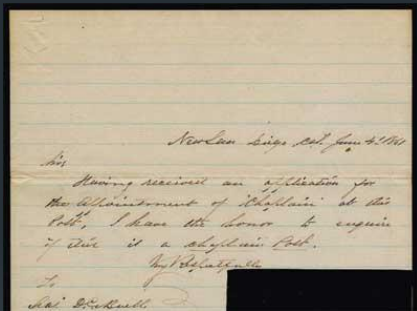 New San Diego Cal. June 4th 1860
Sir,
Having received an application for
the appointment of Chaplain at this
Post, I have the honor to enquire
if this is a chaplain Post.
Very Respectfully
To